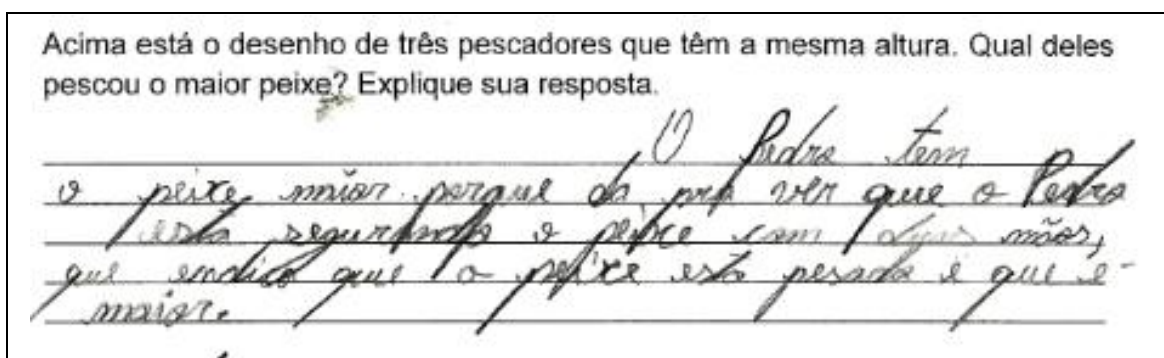 Acima está o desenho de três pescadores que têm a mesma altura. Qual deles
pescou o maior peixe? Explique sua resposta.
O Pedro tem
o peixe maior porque da pra ver que o Pedro
está segurando o peixe com duas mãos,
que endica que o peixe está pesado e que e
maior.